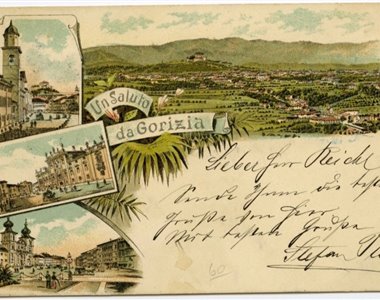 Un Saluto
da Gorizia
Lieber Herr Reichl
Sende Ihnen die besten
Grüße von hier
Mit besten Grüßen
Stefan
60